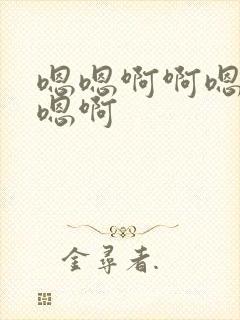 嗯嗯啊啊嗯
嗯啊
金尋者.